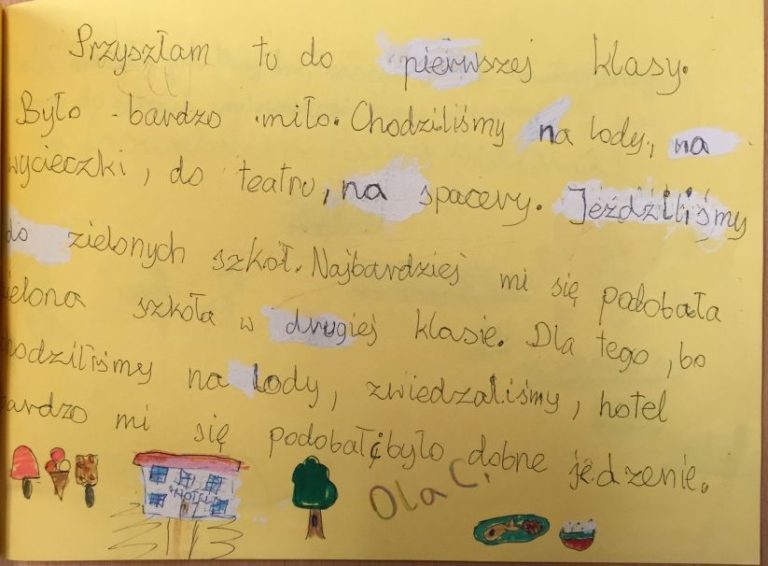 Przyszłam tu do pierwszej klasy.
Było bardzo miło. Chodziliśmy na lody, na
wycieczki, do teatru, na spacery. Jeździliśmy
do zielonych szkół. Najbardziej mi się podobała
ielona szkoła w drugiej klasie. Dla tego, bo
hodziliśmy na lody, zwiedzaliśmy, hotel
bardzo mi się podobał i było dobne jedzenie.
HOTEL
Ola C.